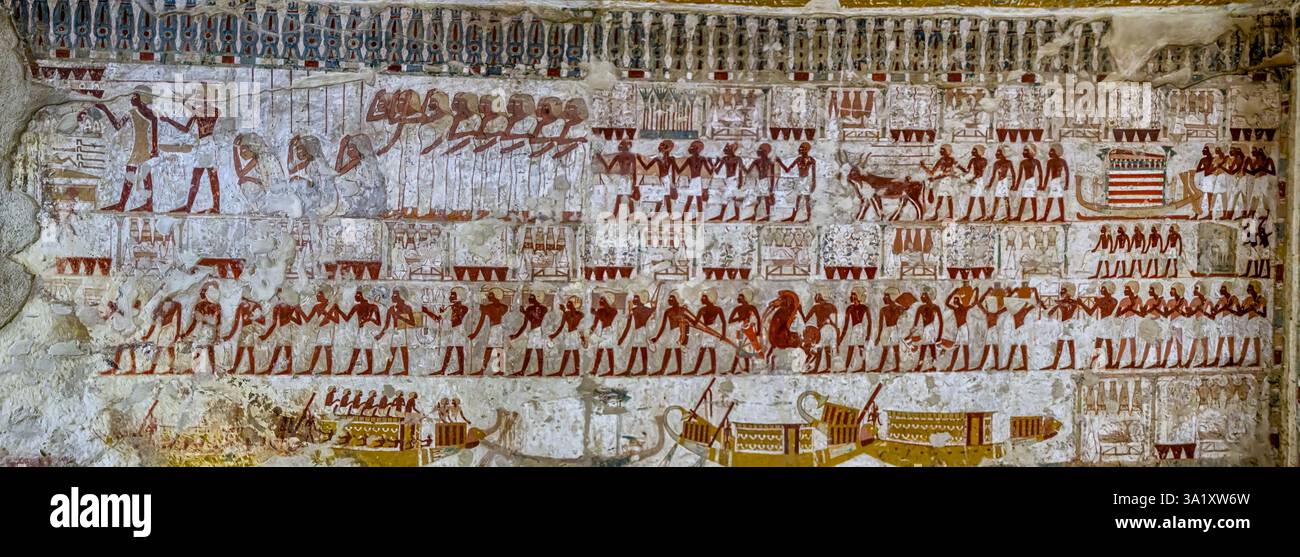 alamy
alamy
Image ID: 3A1XW6W
www.alamy.com